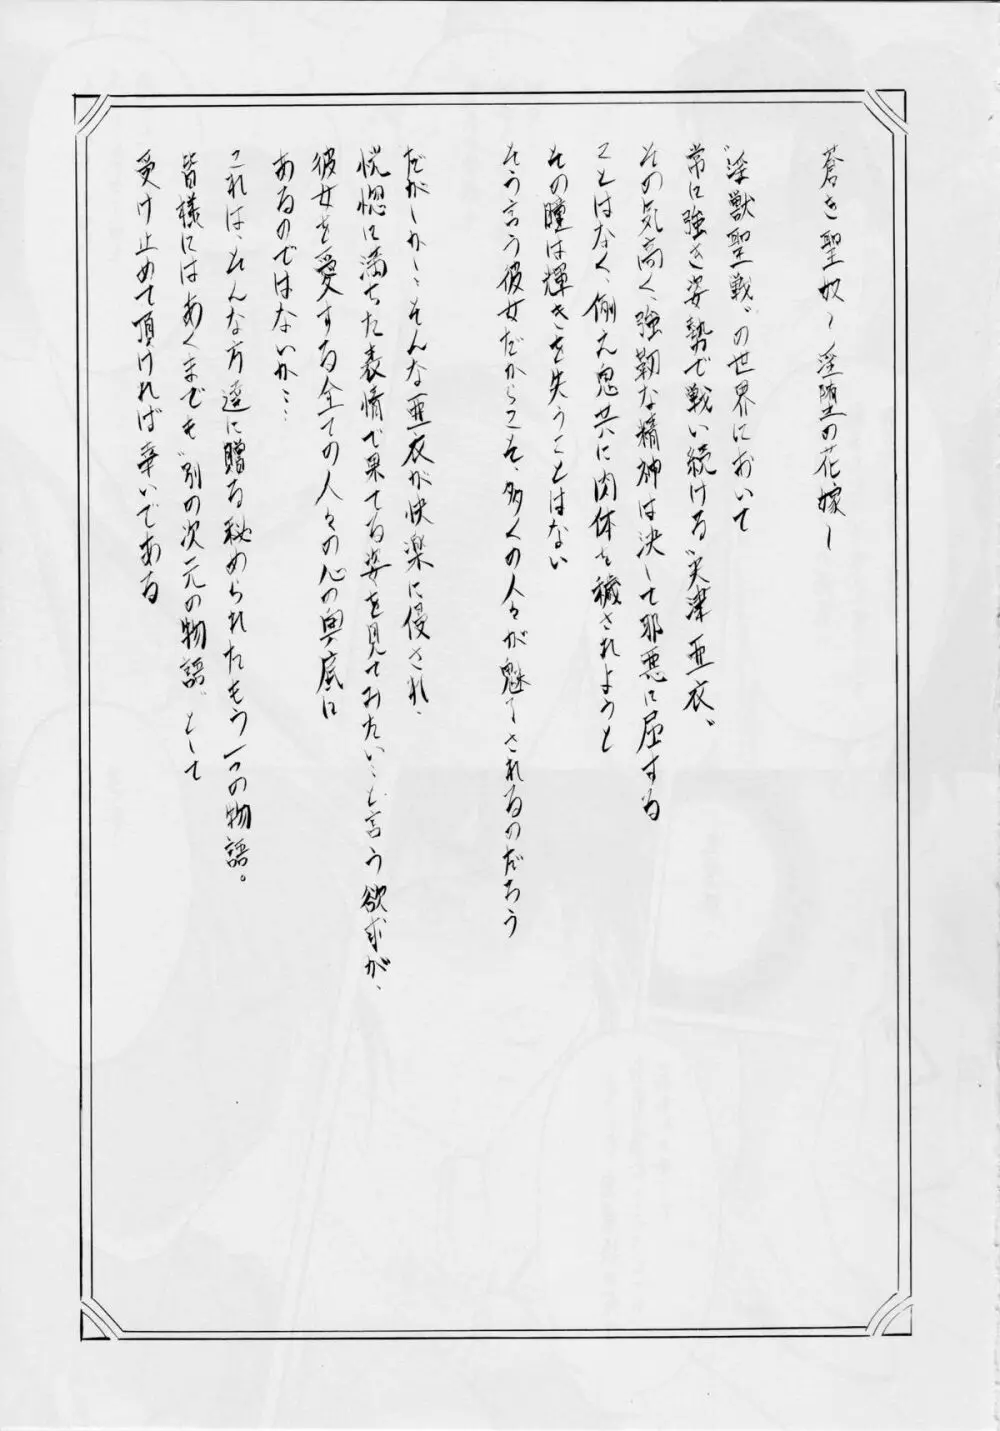 蒼き聖奴～淫堕の花嫁～
“淫獣聖戦”の世界において
常に強き姿勢で戦い続ける“天津亜衣”
その気高く、強靭な精神は決して邪悪に屈する
ことはなく、例え鬼共に肉体を穢されようと
その瞳は輝きを失うことはない
そう言う彼女だからこそ、多くの人々が魅了されるのだろう
だがしかし、そんな亜衣が快楽に侵され、
恍惚に満ちた表情で果てる姿を見ておたい…と言う欲求が、
彼女を愛する全ての人々の心の奥底に
あるのではないか…
これは、そんな方達に贈る秘められたもう一つの物語。
皆様にはあくまでも“別の次元の物語”として
受け止めて頂ければ幸いである